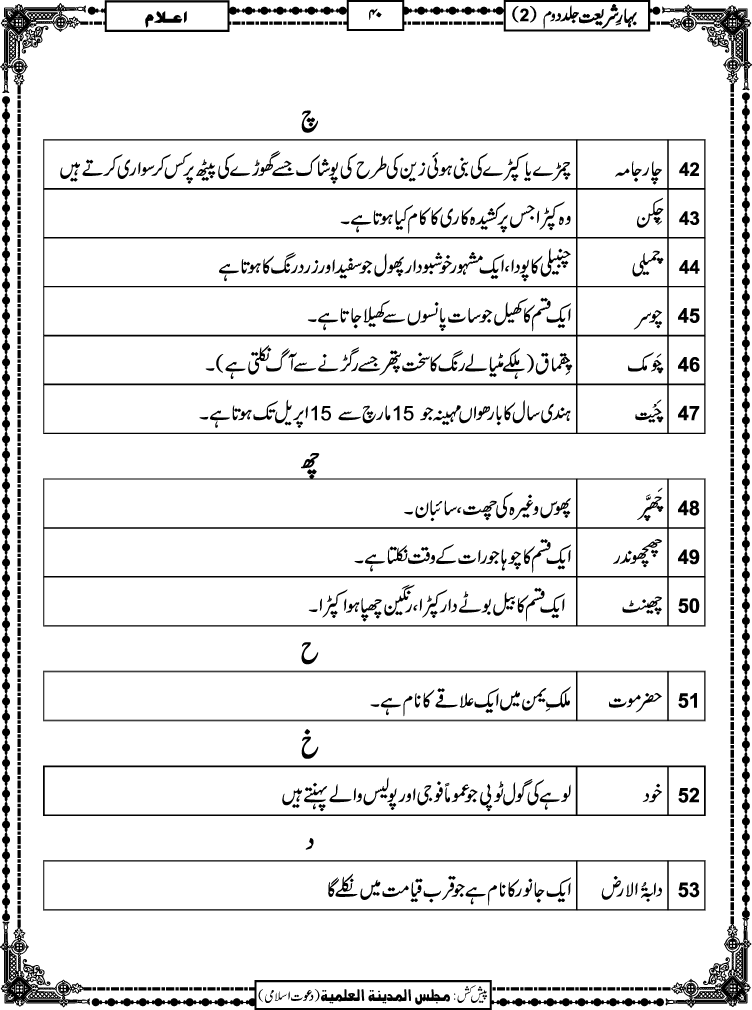 بہارِشریعت جلد دوم (2) ۴۰ اعلام
چ
42 چارجامہ چمڑے یا کپڑے کی بنی ہوئی زین کی طرح کی پوشاک جسے گھوڑے کی پیٹھ پر کس کر سواری کرتے ہیں
43 چِکن وہ کپڑا جس پر کشیدہ کاری کا کام کیا ہوتا ہے۔
44 چمیلی چنبیلی کا پودا، ایک مشہور خوشبودار پھول جو سفید اور زرد رنگ کا ہوتا ہے
45 چوسر ایک قسم کا کھیل جو سات پانسوں سے کھیلا جاتا ہے۔
46 چَومک چِقماق (ہلکے مٹیالے رنگ کا سخت پتھر جسے رگڑنے سے آگ نکلتی ہے)۔
47 چَیْت ہندی سال کا بارھواں مہینہ جو 15 مارچ سے 15 اپریل تک ہوتا ہے۔
چھ
48 چَھپَّر پھوس وغیرہ کی چھت، سائبان۔
49 چھچھوندر ایک قسم کا چوہا جو رات کے وقت نکلتا ہے۔
50 چھینٹ ایک قسم کا بیل بوٹے دار کپڑا، رنگین چھپا ہوا کپڑا۔
ح
51 حضرموت ملکِ یمن میں ایک علاقے کا نام ہے۔
خ
52 خود لوہے کی گول ٹوپی جو عموماً فوجی اور پولیس والے پہنتے ہیں
د
53 دابۃ الارض ایک جانور کا نام ہے جو قرب قیامت میں نکلے گا
پیش کش: مجلس المدينة العلمية (دعوت اسلامی)